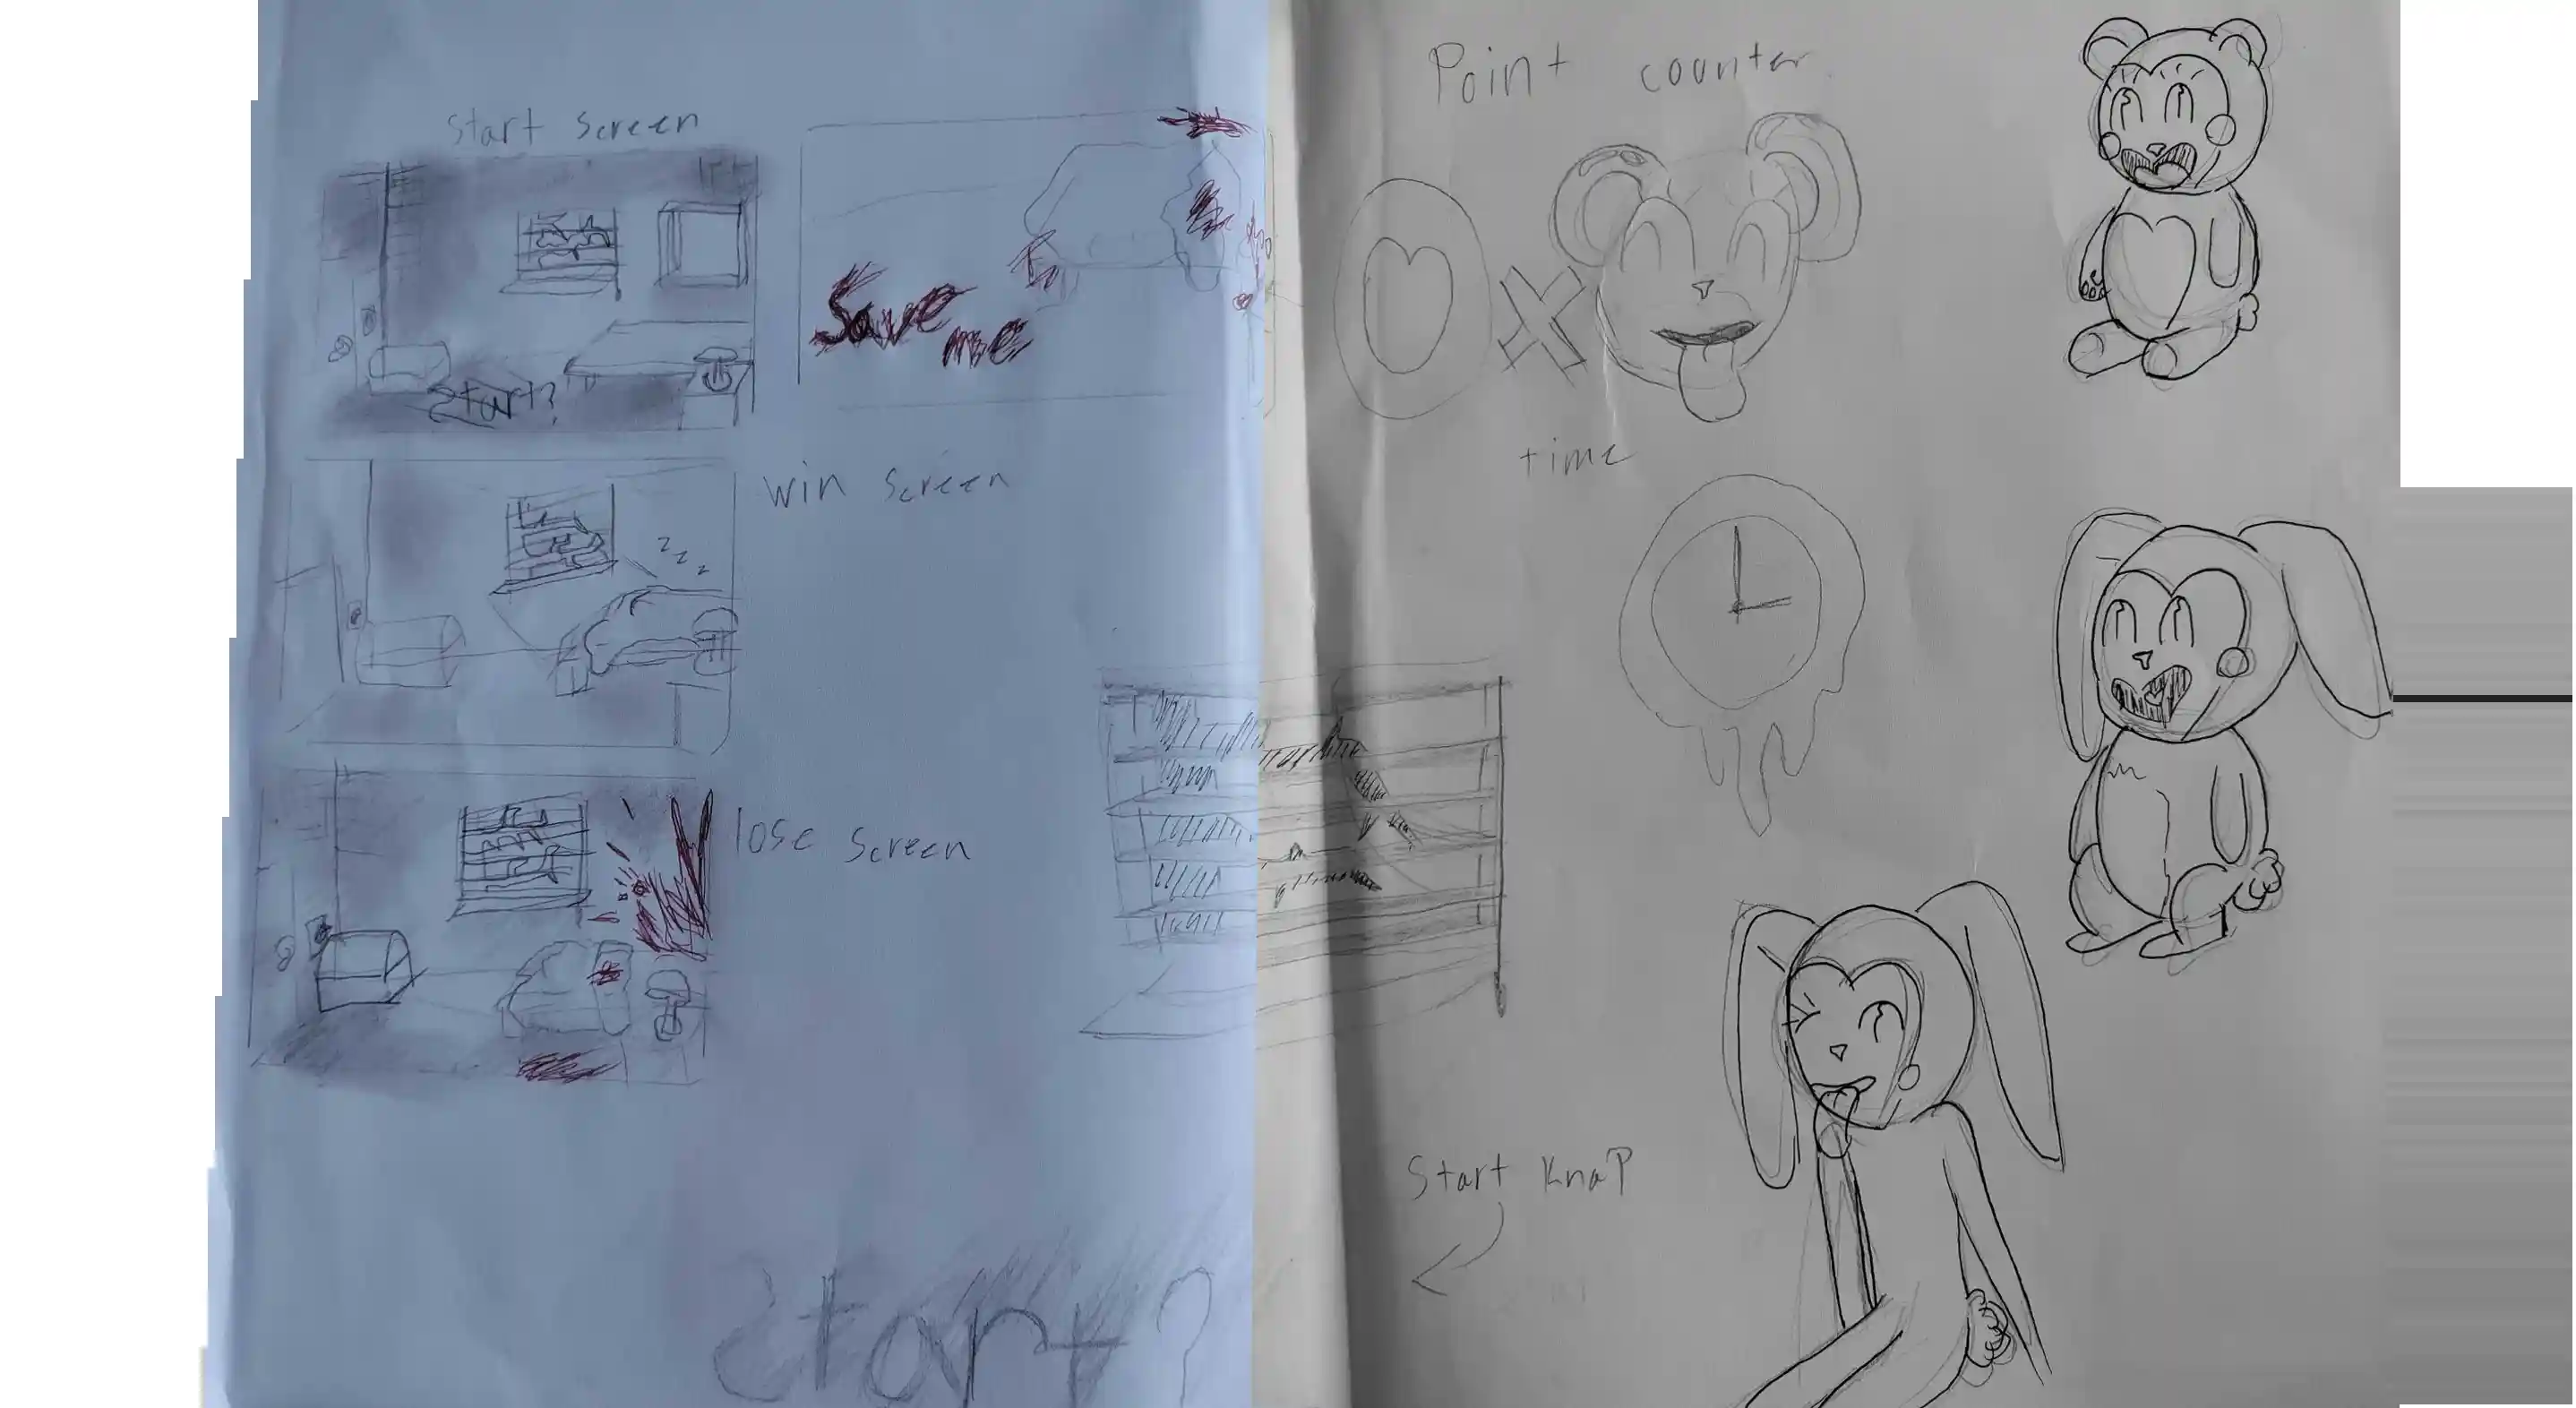 start screen
Save
me
Start?
win screen
z z z
lose screen
Start?
Point counter
O X
time
Start Knap